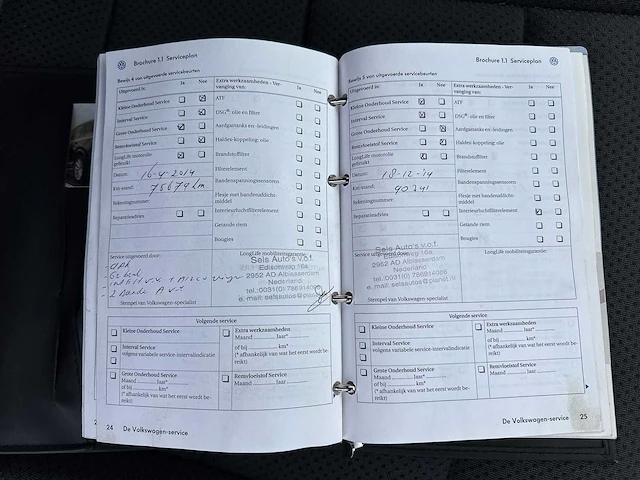 Brochure 1.1 Serviceplan
Bewijs 4 van uitgevoerde servicebeurten
Uitgevoerd in: Ja Nee
Kleine Onderhoud Service
Interval Service
Grote Onderhoud Service
Remvloeistof Service
LongLife motorolie
gebruikt
Datum: 16-4-2014
Km-stand: 75674 km
Rekeningnummer:
Reparatieadvies
Extra werkzaamheden - Ver-
vanging van: Ja Nee
ATF
DSG®: olie en filter
Aardgastanks en -leidingen
Haldex-koppeling: olie
Brandstoffilter
Filterelement
Bandenspanningssensoren
Flesje met bandenafdicht-
middel
Interieurluchtfilterelement
Getande riem
Bougies
Service uitgevoerd door:
LongLife mobiliteitsgarantie:
Sels Auto's v.o.f.
Edisonweg 16a
2952 AD Alblasserdam
Nederland
tel.:0031(0) 786914086
e. mail: selsautos@planet.nl
Stempel van Volkswagen-specialist
Volgende service
Kleine Onderhoud Service
Interval Service
volgens variabele service-intervalindicatie
Grote Onderhoud Service
Maand ............ Jaar*
of bij ............ km*
(* afhankelijk van wat het eerst wordt be-
reikt)
Extra werkzaamheden
Maand ............ Jaar*
of bij ............ km*
(* afhankelijk van wat het eerst wordt be-
reikt)
Remvloeistof Service
Maand ............ Jaar
24 De Volkswagen-service
Brochure 1.1 Serviceplan
Bewijs 5 van uitgevoerde servicebeurten
Uitgevoerd in: Ja Nee
Kleine Onderhoud Service
Interval Service
Grote Onderhoud Service
Remvloeistof Service
LongLife motorolie
gebruikt
Datum: 18-12-14
Km-stand: 90241
Rekeningnummer:
Reparatieadvies
Extra werkzaamheden - Ver-
vanging van: Ja Nee
ATF
DSG®: olie en filter
Aardgastanks en -leidingen
Haldex-koppeling: olie
Brandstoffilter
Filterelement
Bandenspanningssensoren
Flesje met bandenafdicht-
middel
Interieurluchtfilterelement
Getande riem
Bougies
Service uitgevoerd door:
LongLife mobiliteitsgarantie:
Sels Auto's v.o.f.
Edisonweg 16a
2952 AD Alblasserdam
Nederland
tel.:0031(0) 786914086
e. mail: selsautos@planet.nl
Stempel van Volkswagen-specialist
Volgende service
Kleine Onderhoud Service
Interval Service
volgens variabele service-intervalindicatie
Grote Onderhoud Service
Maand ............ Jaar*
of bij ............ km*
(* afhankelijk van wat het eerst wordt be-
reikt)
Extra werkzaamheden
Maand ............ Jaar*
of bij ............ km*
(* afhankelijk van wat het eerst wordt be-
reikt)
Remvloeistof Service
Maand ............ Jaar
De Volkswagen-service 25